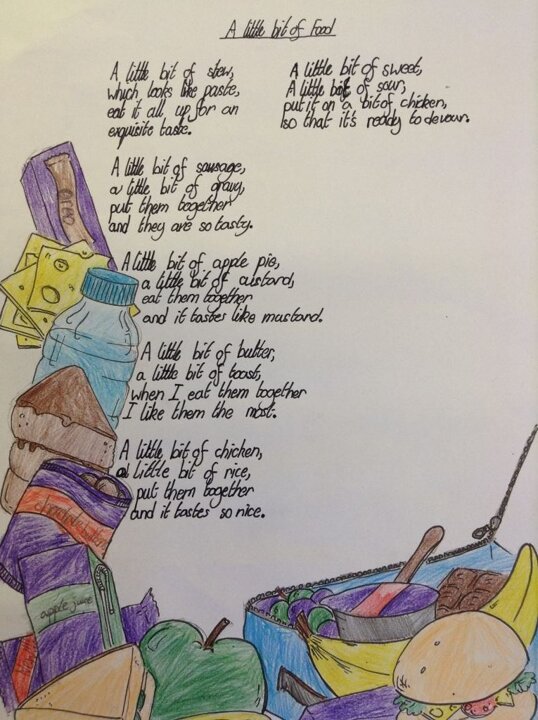 A little bit of Food
A little bit of stew,
which looks like paste,
eat it all up for an
exquisite taste.
A little bit of sausage,
a little bit of gravy,
put them together
and they are so tasty.
A little bit of apple pie,
a little bit of custard,
eat them together
and it tastes like mustard.
A little bit of butter,
a little bit of toast,
when I eat them together
I like them the most.
A little bit of chicken,
a little bit of rice,
put them together
and it tastes so nice.
A little bit of sweet,
A little bit of sour,
put it on a bit of chicken,
so that it's ready to devour.
chocolate
apple juice